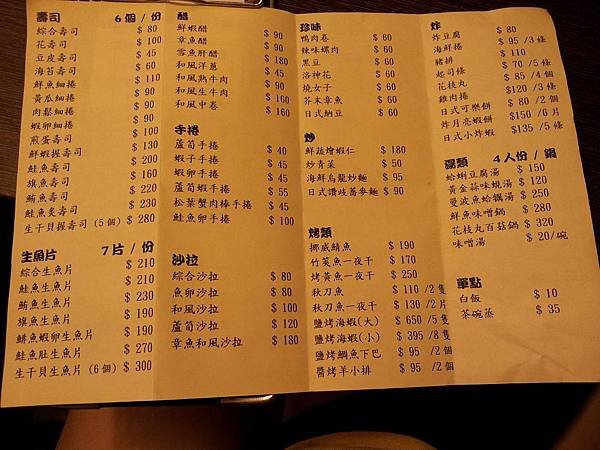 壽司 6個/份
綜合壽司 $ 80
花壽司 $ 100
豆皮壽司 $ 45
海苔壽司 $ 60
鮮魚細捲 $ 110
黃瓜細捲 $ 90
肉鬆細捲 $ 90
蝦卵細捲 $ 90
煎蛋壽司 $ 100
鮮蝦握壽司 $ 130
鮭魚壽司 $ 160
旗魚壽司 $ 155
鮪魚壽司 $ 220
鮭魚炙壽司 $ 230
生干貝握壽司 (5個) $ 280
生魚片 7片/份
綜合生魚片 $ 210
鮭魚生魚片 $ 210
鮪魚生魚片 $ 230
旗魚生魚片 $ 190
鯡魚蝦卵生魚片 $ 190
鮭魚肚生魚片 $ 270
生干貝生魚片 (6個) $ 300
醋
鮮蝦醋 $ 90
章魚醋 $ 90
雪魚肝醋 $ 180
和風洋蔥 $ 45
和風熟牛肉 $ 90
和風生牛肉 $ 160
和風中卷 $ 160
手捲
蘆筍手捲 $ 40
蝦子手捲 $ 45
蝦卵手捲 $ 45
蘆筍蝦手捲 $ 55
松葉蟹肉棒手捲 $ 45
鮭魚卵手捲 $ 100
沙拉
綜合沙拉 $ 80
魚卵沙拉 $ 80
和風沙拉 $ 80
蘆筍沙拉 $ 120
章魚和風沙拉 $ 180
珍味
鴨肉卷 $ 60
辣味螺肉 $ 60
黑豆 $ 60
洛神花 $ 60
燒女子 $ 60
芥末章魚 $ 60
日式納豆 $ 60
炒
鮮蔬燴蝦仁 $ 180
炒青菜 $ 50
海鮮烏龍炒麵 $ 95
日式讚歧蕎麥麵 $ 90
烤類
挪威鯖魚 $ 190
竹筴魚一夜干 $ 170
烤黃魚一夜干 $ 250
秋刀魚 $ 110 /2隻
秋刀魚一夜干 $ 130 /2片
鹽烤海蝦(大) $ 650 /5隻
鹽烤海蝦(小) $ 395 /8隻
鹽烤鯛魚下巴 $ 95 /2個
醬烤羊小排 $ 95 /2個
炸
炸豆腐 $ 80
海鮮捲 $ 95 /3條
豬排 $ 110
起司條 $ 70 /5條
花枝丸 $ 85 /4個
雞肉捲 $120 /3條
日式可樂餅 $ 80 /2個
炸月亮蝦餅 $150 /6片
日式小炸蝦 $135 /5條
湯類 4人份/鍋
蛤蜊豆腐湯 $ 150
黃金蒜味蜆湯 $ 120
曼波魚蛤蠣湯 $ 250
鮮魚味噌鍋 $ 280
花枝丸百菇鍋 $ 320
味噌湯 $ 20/碗
單點
白飯 $ 10
茶碗蒸 $ 35